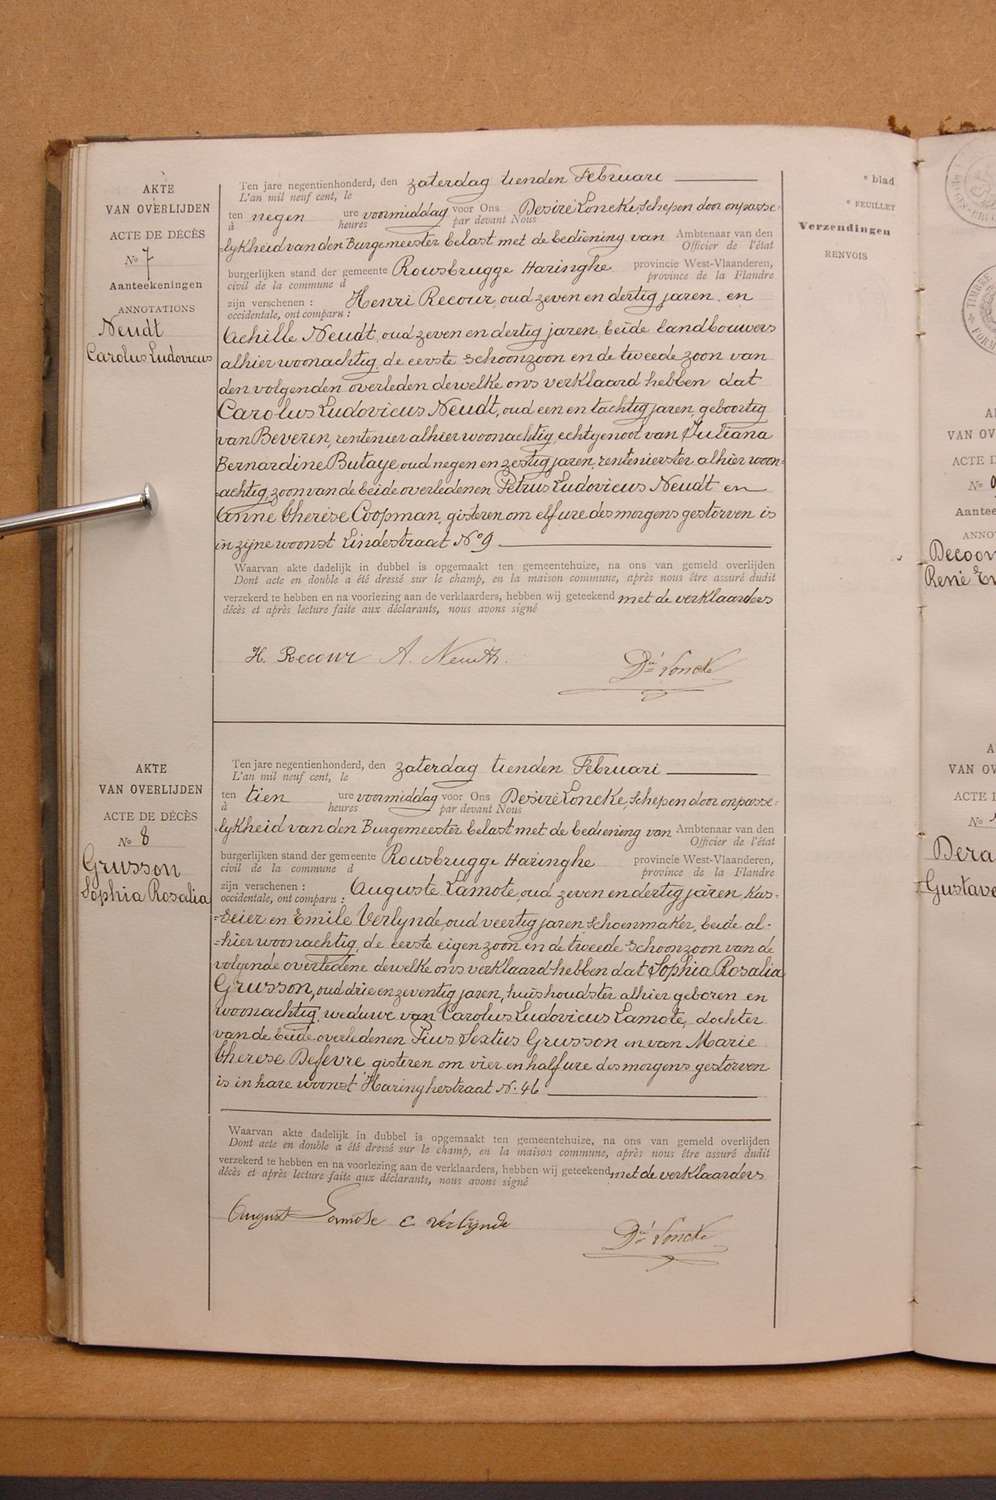 AKTE
VAN OVERLIJDEN
ACTE DE DÉCÈS
No 7
Aanteekeningen
ANNOTATIONS
Neudt
Carolus Ludovicus
Ten jare negentienhonderd, den zaterdag tienden Februari
L'an mil neuf cent, le
ten negen ure voormiddag voor Ons Desiré Loncke, schepen door onpasse-
à heures par devant Nous
lykheid van den Burgemeester belast met de bediening van Ambtenaar van den
Officier de l'état
burgerlijken stand der gemeente Rousbrugge Haringhe provincie West-Vlaanderen,
civil de la commune d province de la Flandre
zijn verschenen : Henri Recour, oud zeven en dertig jaren, en
occidentale, ont comparu :
Achille Neudt, oud zeven en dertig jaren, beide landbouwers
alhier woonachtig, de eerste schoonzoon en de tweede zoon van
den volgenden overleden dewelke ons verklaard hebben dat
Carolus Ludovicus Neudt, oud een en tachtig jaren, geboortig
van Beveren, rentenier alhier woonachtig, echtgenoot van Juliana
Bernardine Butaye oud negen en zestig jaren, rentenierster alhier woon-
achtig, zoon van de beide overledenen Petrus Ludovicus Neudt en
Anne Therese Coopman, gisteren om elf ure des morgens gestorven is
in zijne woonst Lindestraat No 9
Waarvan akte dadelijk in dubbel is opgemaakt ten gemeentehuize, na ons van gemeld overlijden
Dont acte en double a été dressé sur le champ, en la maison commune, après nous être assuré dudit
verzekerd te hebben en na voorlezing aan de verklaarders, hebben wij geteekend met de verklaarders
décès et après lecture faite aux déclarants, nous avons signé
H. Recour A. Neudt. Dré Loncke
AKTE
VAN OVERLIJDEN
ACTE DE DÉCÈS
No 8
Grusson
Sophia Rosalia
Ten jare negentienhonderd, den zaterdag tienden Februari
L'an mil neuf cent, le
ten tien ure voormiddag voor Ons Desiré Loncke, schepen door onpasse-
à heures par devant Nous
lykheid van den Burgemeester belast met de bediening van Ambtenaar van den
Officier de l'état
burgerlijken stand der gemeente Rousbrugge Haringhe provincie West-Vlaanderen,
civil de la commune d province de la Flandre
zijn verschenen : Auguste Lamote, oud zeven en dertig jaren kas-
occidentale, ont comparu :
seier en Emile Verlynde, oud veertig jaren schoenmaker, beide al-
hier woonachtig, de eerste eigen zoon en de tweede schoonzoon van de
volgende overledene dewelke ons verklaard hebben dat Sophia Rosalia
Grusson, oud drie en zeventig jaren, huishoudster alhier geboren en
woonachtig, weduwe van Carolus Ludovicus Lamote, dochter
van de beide overledenen Pius Sextius Grusson en van Marie
Therese Defevre, gisteren om vier en half ure des morgens gestorven
is in hare woonst Haringhestraat No. 46
Waarvan akte dadelijk in dubbel is opgemaakt ten gemeentehuize, na ons van gemeld overlijden
Dont acte en double a été dressé sur le champ, en la maison commune, après nous être assuré dudit
verzekerd te hebben en na voorlezing aan de verklaarders, hebben wij geteekend met de verklaarders
décès et après lecture faite aux déclarants, nous avons signé
August Lamote E Verlynde Dré Loncke
* blad
* FEUILLET
Verzendingen
RENVOIS
VAN OV
ACTE D
No
Aantee
ANNO
Decoon
René E
VAN OV
ACTE D
No
Dera
Gustave